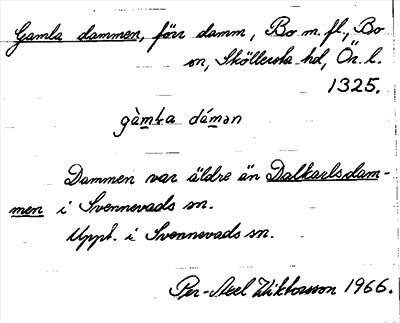 Gamla dammen, förr damm, Bo m.fl., Bo
sn, Sköllersta hd, Ör. l.
1325.
gàmła dámən
Dammen var äldre än Dalkarlsdam-
men i Svennevads sn.
Uppt. i Svennevads sn.
Per-Axel Wiktorsson 1966.